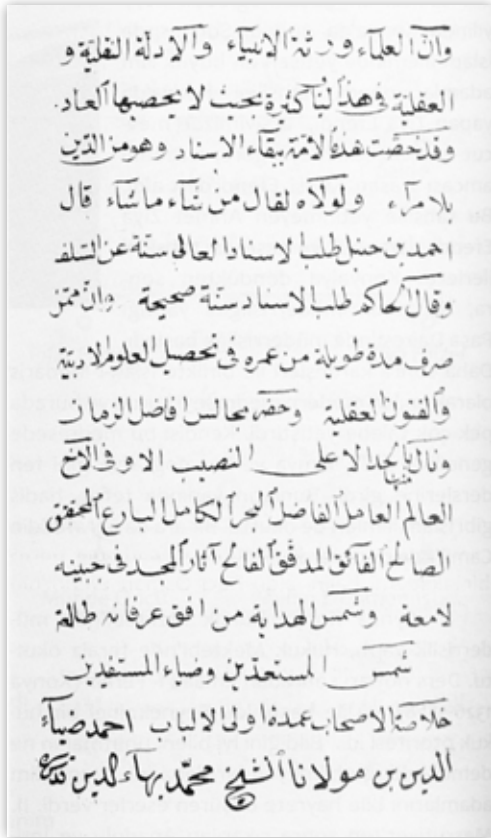 وان العلماء ورثة الانبياء والادلة النقلية و
العقلية في هذا لنا كثيرة بحيث لا يحصيها العاد.
وقد خصت هذه الامة ببقاء الاسناد وهو من الدين
بلا مراء ولولاه لقال من شاء ما شاء قال
احمد بن حنبل طلب الاسناد العالى سنة عن السلف
وقال الحاكم طلب الاسناد سنة صحيحة وان ممن
صرف مدة طويلة من عمره فى تحصيل العلوم الادبية
والفنون العقلية وحضر مجالس فاضل الزمان
ونال بالجد الاعلى النصيب الاوفى الاخ
العالم العامل الفاضل الكامل البارع المحقق
الصالح الفائق المدقق الفالح آثار المجد فى جبينه
لامعة وشمس الهداية من افق عرفانه طالعة
شمس المستعدين وضياء المستفيدين
خلاصة الاصحاب عمدة اولى الالباب احمد ضياء
الدين بن مولانا الشيخ محمد بهاء الدين